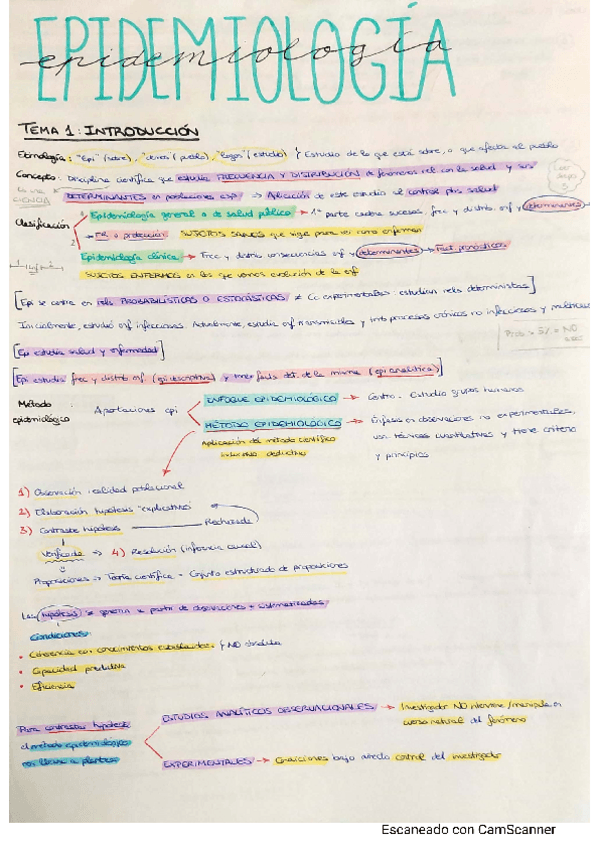 EPIDEMIOLOGÍA
epidemiología
TEMA 1: INTRODUCCIÓN
Etimología: "Epi" (sobre), "demos" (pueblo), "logos" (estudio) } Estudio de lo que está sobre, o que afecta al pueblo
Concepto: Disciplina científica que estudia FRECUENCIA Y DISTRIBUCIÓN de fenómenos rel con la salud y sus
CIENCIA
DETERMINANTES en poblaciones esp → Aplicación de este estudio al control salud
Clasificación
1 Epidemiología general o de salud pública → 1ª parte sucesos, frec y distrib. enf y determinantes
FR o protección SUJETOS SANOS que sigue para ver como enferman
2 Epidemiología clínica → Frec y distrib consecuencias enf y determinantes → Fact. pronósticos
SUJETOS ENFERMOS en los que vemos evolución de la enf
[Epi se centra en rels PROBABILÍSTICAS O ESTOCÁSTICAS ≠ Cc experimentales: estudian rels deterministas]
Inicialmente, estudió enf infecciosas. Actualmente, estudia enf transmisibles y tmb procesos crónicos no infecciosos y
[Epi estudia salud y enfermedad]
[Epi estudia frec y distrib enf (epi descriptiva) y tmb det. de la misma (epi analítica)]
Método epidemiológico
Aportaciones epi
ENFOQUE EPIDEMIOLÓGICO → Centro. Estudia grupos humanos
MÉTODO EPIDEMIOLÓGICO → Énfasis en observaciones no experimentales,
Aplicación del método científico usa técnicas cuantitativas y tiene criterio
inductivo deductivo y principios
1) Observación realidad poblacional
2) Elaboración hipótesis "explicativas"
3) Contraste hipótesis Rechazada
Verificada → 4) Resolución (inferencia causal)
Proposiciones → Teoría científica = Conjunto estructurado de proposiciones
Las hipótesis se generan a partir de observaciones + sistematizadas
Condiciones:
• Coherencia con conocimientos establecidos } NO absoluta
• Capacidad predictiva
• Eficiencia
Para contrastar hipótesis
el método epidemiológico
nos lleva a plantear
ESTUDIOS ANALÍTICOS OBSERVACIONALES → Investigador NO interviene/manipula en
curso natural del fenómeno
EXPERIMENTALES → Condiciones bajo control del investigador
Escaneado con CamScanner